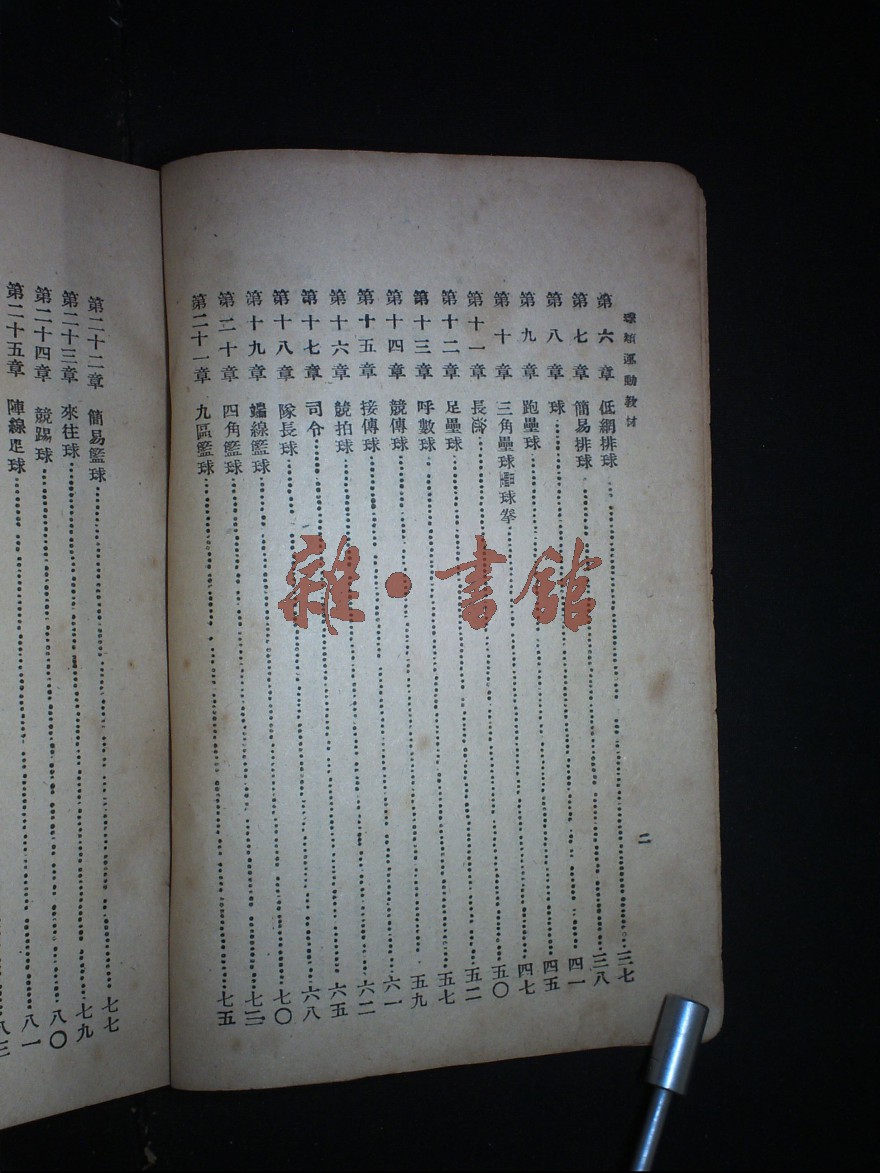 球類運動教材
二
第六章 低網排球 三七
第七章 簡易排球 三八
第八章 球 四一
第九章 跑壘球 四五
第十章 三角壘球 球拳 四七
第十一章 長 五〇
第十二章 足壘球 五二
第十三章 呼數球 五七
第十四章 競傳球 五九
第十五章 接傳球 六一
第十六章 競拍球 六二
第十七章 司令 六五
第十八章 隊長球 六八
第十九章 端線球 七〇
第二十章 四角籃球 七三
第二十一章 九區籃球 七五
第二十二章 簡易籃球 七七
第二十三章 來往球 七九
第二十四章 競踢球 八〇
第二十五章 陣線足球 八一
八三
雜·書館